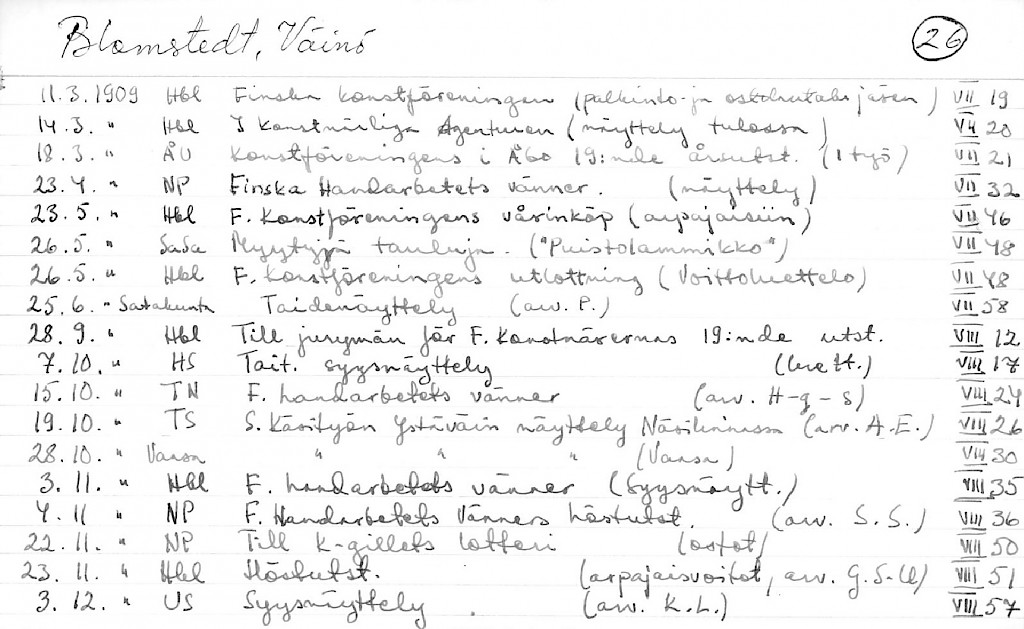 Blomstedt, Väinö 26
11.3.1909 Hbl Finska konstföreningen (palkinto- ja ostolautak. jäsen) VII 19
14.3. " Hbl I konstnärliga Agenturen (näyttely tulossa) VII 20
18.3. " ÅU Konstföreningens i Åbo 19:nde årsutst. (1 työ) VII 21
23.4. " NP Finska Handarbetets vänner. (näyttely) VII 32
23.5. " Hbl F. Konstföreningens vårinköp (arpajaisiin) VII 46
26.5. " SaSa Myytyjä tauluja. ("Puistolammikko") VII 48
26.5. " Hbl F. konstföreningens utlottning (Voittoluettelo) VII 48
25.6. " Satakunta Taidenäyttely (arv. P.) VII 58
28.9. " Hbl Till jurymän för F. Konstnärernas 19:nde utst. VIII 12
7.10. " HS Tait. syysnäyttely (luett.) VIII 17
15.10. " TN F. handarbetets vänner (arv. H-g-s) VIII 24
19.10. " TS S. Käsityön Ystäväin näyttely Näsilinnassa (arv. A.E.) VIII 26
28.10. " Vaasa " " " (Vaasa) VIII 30
3.11. " Hbl F. handarbetets vänner (Syysnäytt.) VIII 35
4.11 " NP F. Handarbetets Vänners höstutst. (arv. S.S.) VIII 36
22.11. " NP Till K-gillets lotteri (ostot) VIII 50
23.11. " Hbl Höstutst. (arpajaisvoitot, arv. G.S-ll) VIII 51
3.12. " US Syysnäyttely. (arv. K.L.) VIII 57